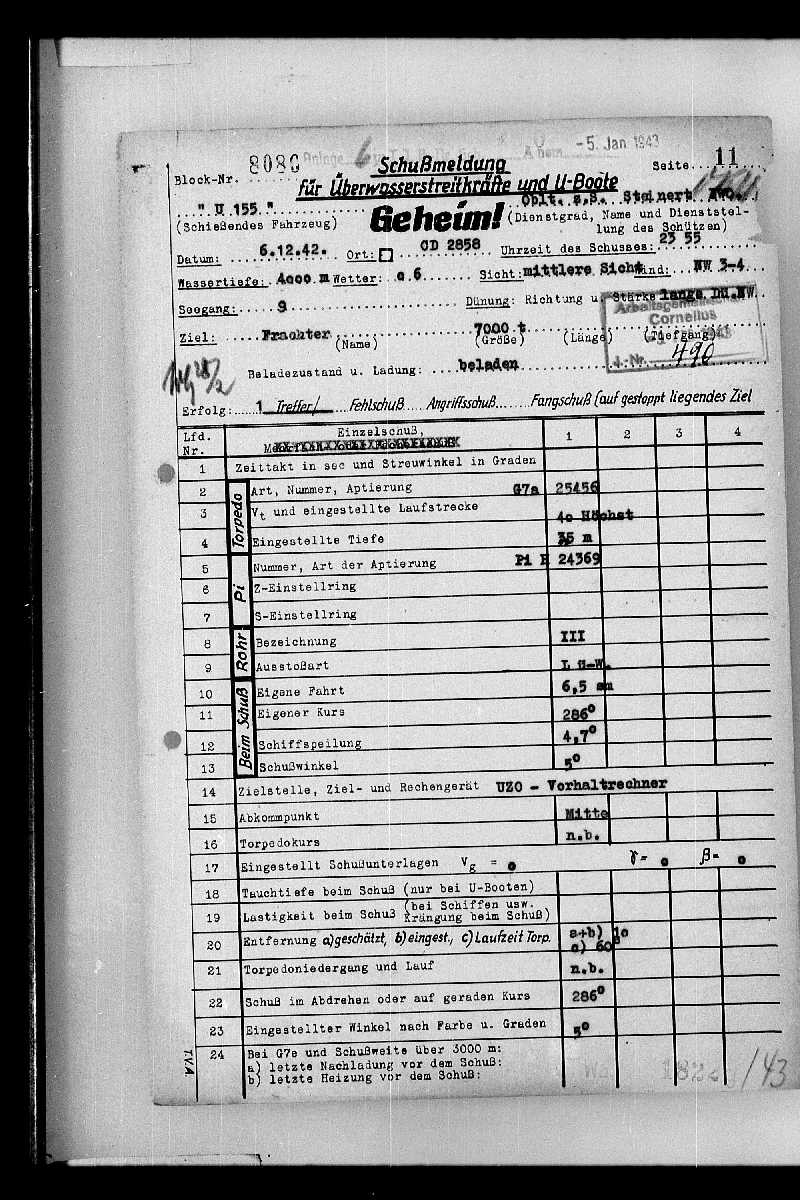 8080 Anlage - 5. Jan 1943
Block-Nr. Schußmeldung Seite 11
für Überwasserstreitkräfte und U-Boote
" U 155 " Geheim! Oblt. z.S. Steinert
(Schießendes Fahrzeug) (Dienstgrad, Name und Dienststel-
lung des Schützen)
Datum: 6.12.42. Ort: CD 2858 Uhrzeit des Schusses: 23 55
Wassertiefe: 4ooo m Wetter: c 6 Sicht: mittlere Sicht Wind: NW 3-4
Seegang: 9 Dünung: Richtung u. Stärke lange Dü.NW.
Arbeitsgemeinschaft
Cornelius
Ziel: Frachter 7000 t
(Name) (Größe) (Länge) (Tiefgang)
J.-Nr. 490
Beladezustand u. Ladung: beladen
Erfolg: 1 Treffer/ Fehlschuß Angriffsschuß Fangschuß (auf gestoppt liegendes Ziel
Lfd. Nr. Einzelschuß, 1 2 3 4
1 Zeittakt in sec und Streuwinkel in Graden
Torpedo
2 Art, Nummer, Aptierung G7a 25456
3 Vt und eingestellte Laufstrecke 4o Höchst
4 Eingestellte Tiefe m
Pi
5 Nummer, Art der Aptierung Pi 24369
6 Z-Einstellring
7 S-Einstellring
Rohr
8 Bezeichnung III
9 Ausstoßart L ü-W.
Beim Schuß
10 Eigene Fahrt 6,5 sm
11 Eigener Kurs 286°
12 Schiffspeilung 4,7°
13 Schußwinkel 5°
14 Zielstelle, Ziel- und Rechengerät UZO - Vorhaltrechner
15 Abkommpunkt Mitte
16 Torpedokurs n.b.
17 Eingestellt Schußunterlagen Vg = o γ= o β= o
18 Tauchtiefe beim Schuß (nur bei U-Booten)
19 Lastigkeit beim Schuß (bei Schiffen usw. Krängung beim Schuß)
20 Entfernung a) geschätzt, b) eingest., c) Laufzeit Torp. a+b) 1o
c) 60
21 Torpedoniedergang und Lauf n.b.
22 Schuß im Abdrehen oder auf geraden Kurs 286°
23 Eingestellter Winkel nach Farbe u. Graden 5°
24 Bei G7e und Schußweite über 3000 m:
a) letzte Nachladung vor dem Schuß:
b) letzte Heizung vor dem Schuß:
T.V.A
/43